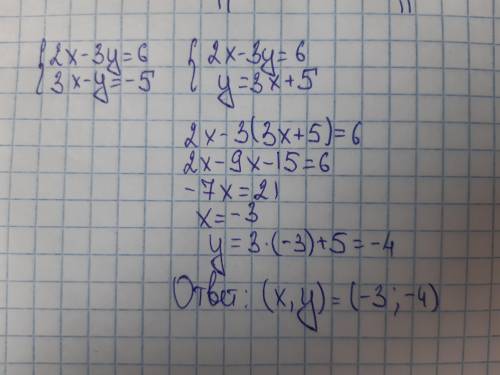 {2x-3y=6 {2x-3y=6
3x-y=-5 y=3x+5
2x-3(3x+5)=6
2x-9x-15=6
-7x=21
x=-3
y=3·(-3)+5=-4
Ответ: (x,y)=(-3;-4)